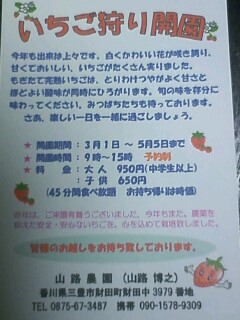 いちご狩り開園
今年も出来は上々です。白くかわいい花が咲き誇り、
甘くておいしい、いちごがたくさん実りました。
もぎたて完熟いちごは、とりわけつやがよく甘さと
ほどよい酸味が同時にひろがります。旬の味を存分に
味わってください。みつばちたちも待っております。
さあ、楽しい一日を一緒に過ごしましょう。
★ 開園期間：3月1日 ～ 5月5日まで
★ 開園時間：9時～15時 予約制
★ 料 金：大 人 950円(中学生以上)
子 供 650円
(45分間食べ放題 お持ち帰りは時価)
昨年は、ご来園有難うございました。今年もまた、農薬を
抑えた安全・安心ないちごを、心を込めて栽培致しました。
皆様のお越しをお待ち致しております。
山 路 農 園 (山路 博之)
香川県三豊市財田町財田中 3979 番地
TEL 0875-67-3487 携帯 090-1578-9309